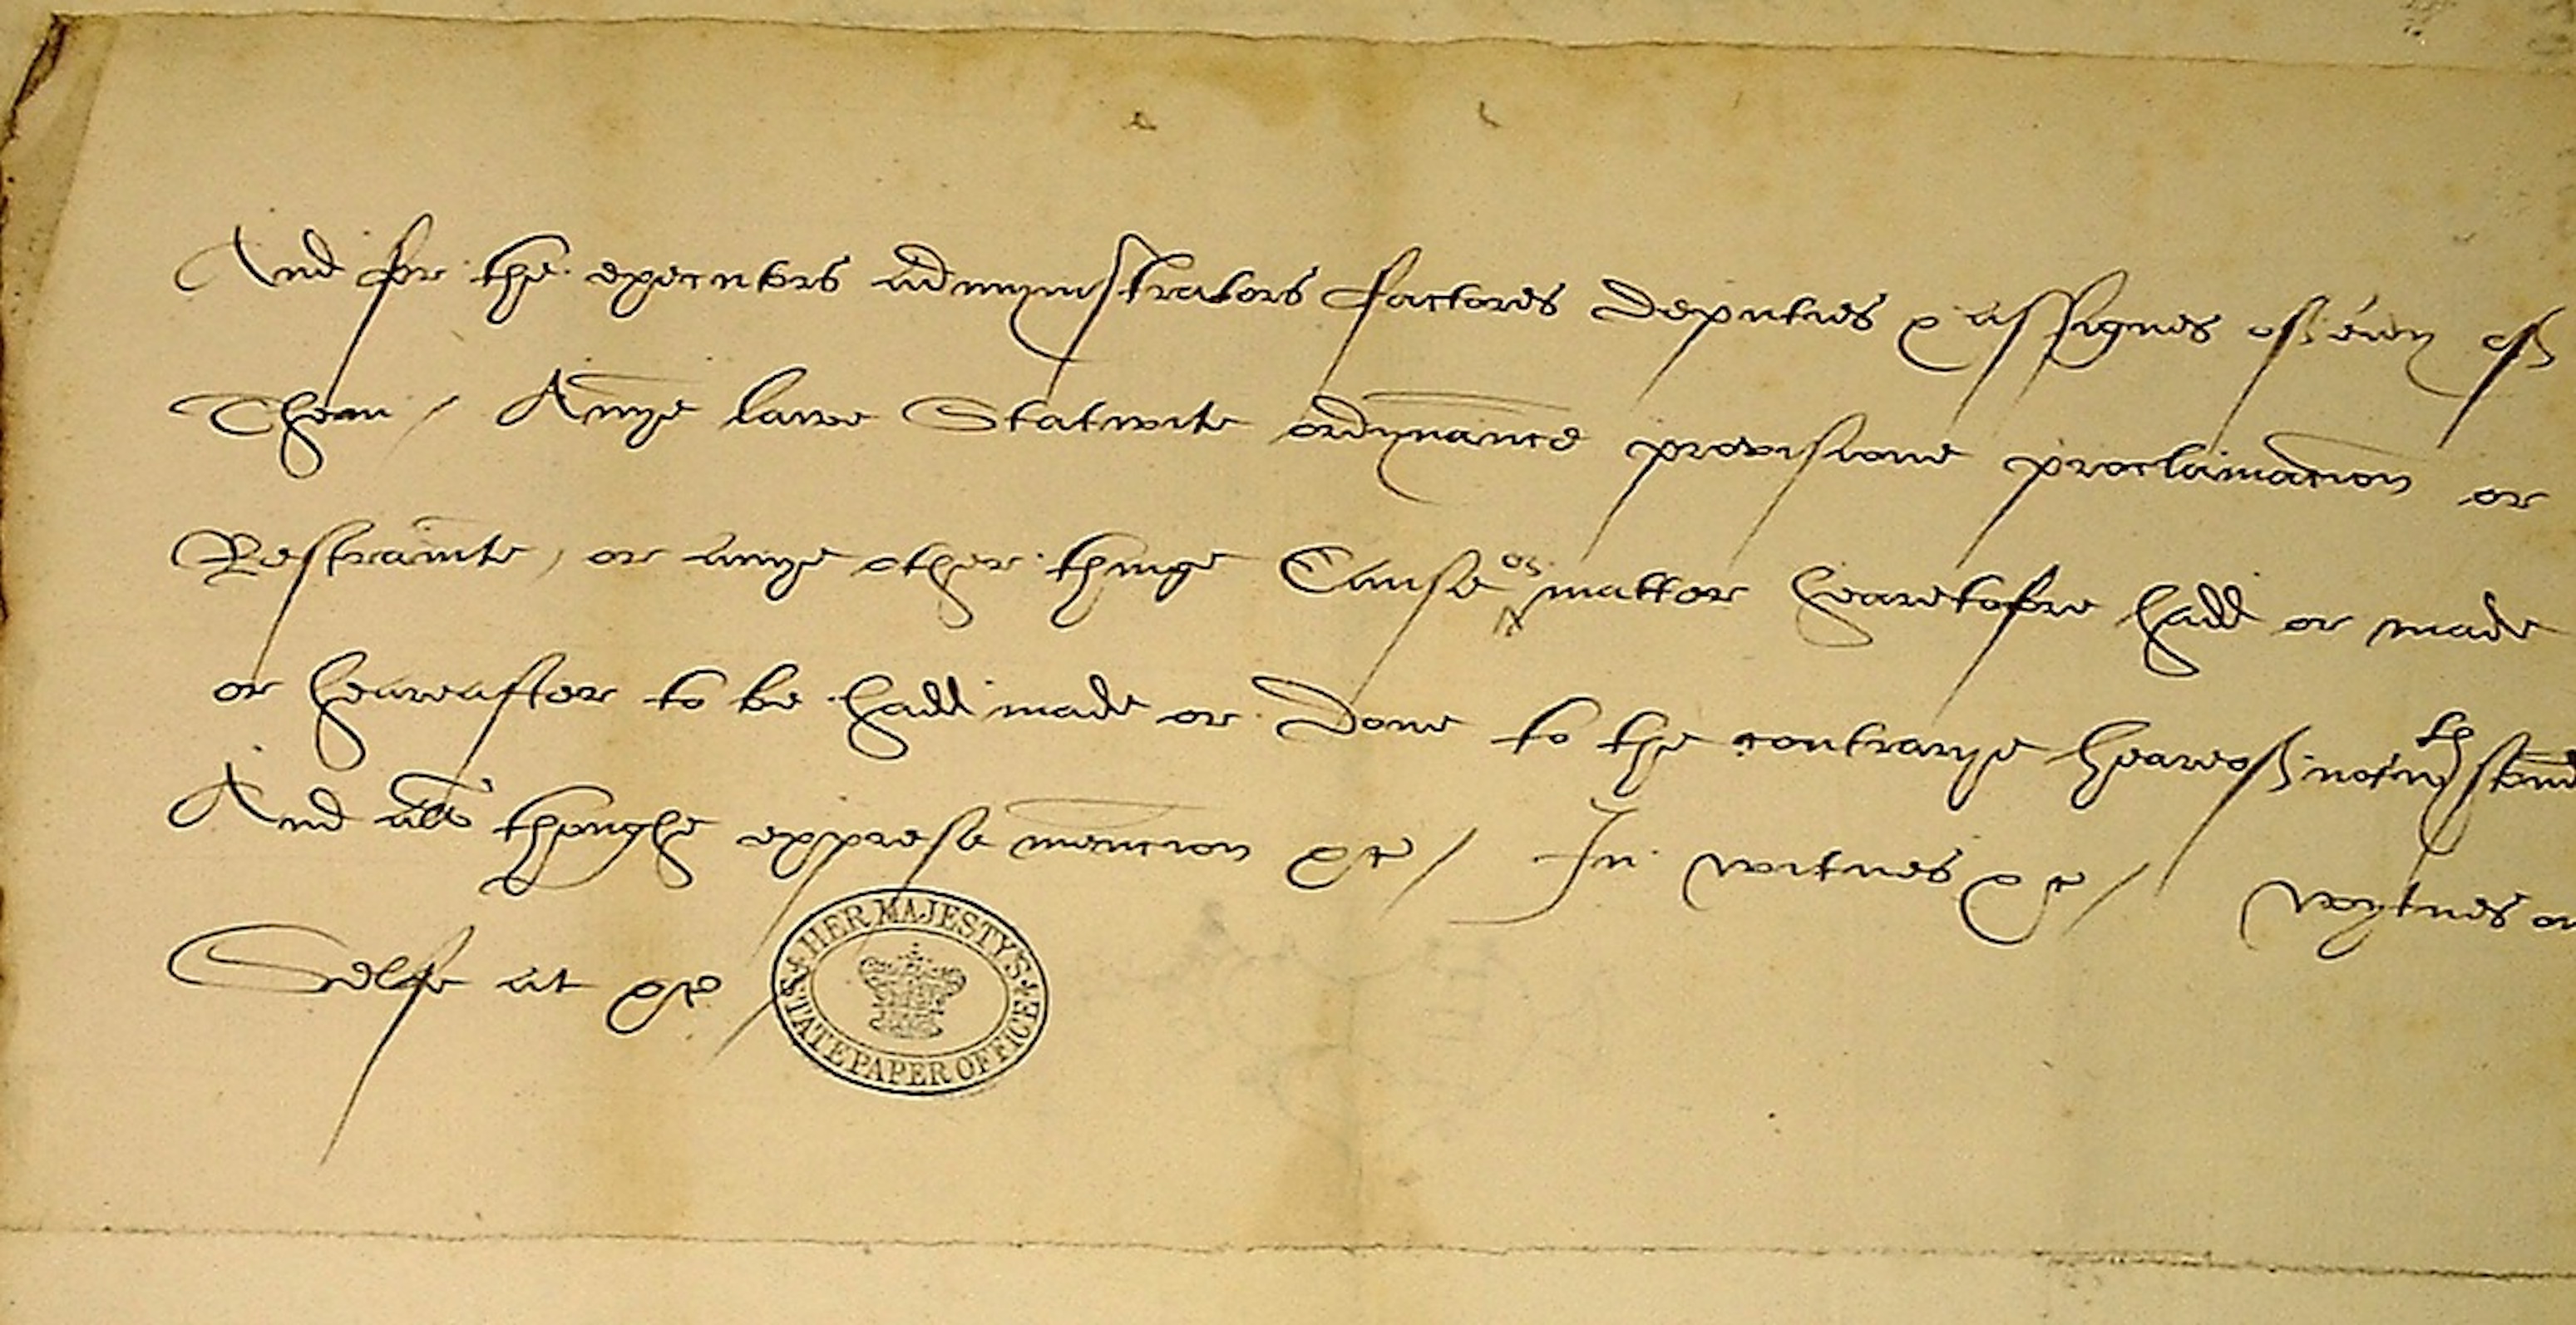 And for the executors admynystrators factores deputies & assignes of eu'y of
Them / Annye lawe Statwite ordynance provisione proclaimacion or
Restrainte, or annye other thinge Cause or matter hearetofore hadd or made
or heareafter to be hadd made or Done to the contrarye heareof notwthstand
And all thoughe expresse mencion &c / In witnes &c / Wytnes or
Selfe at &c /
HER MAJESTY'S STATE PAPER OFFICE